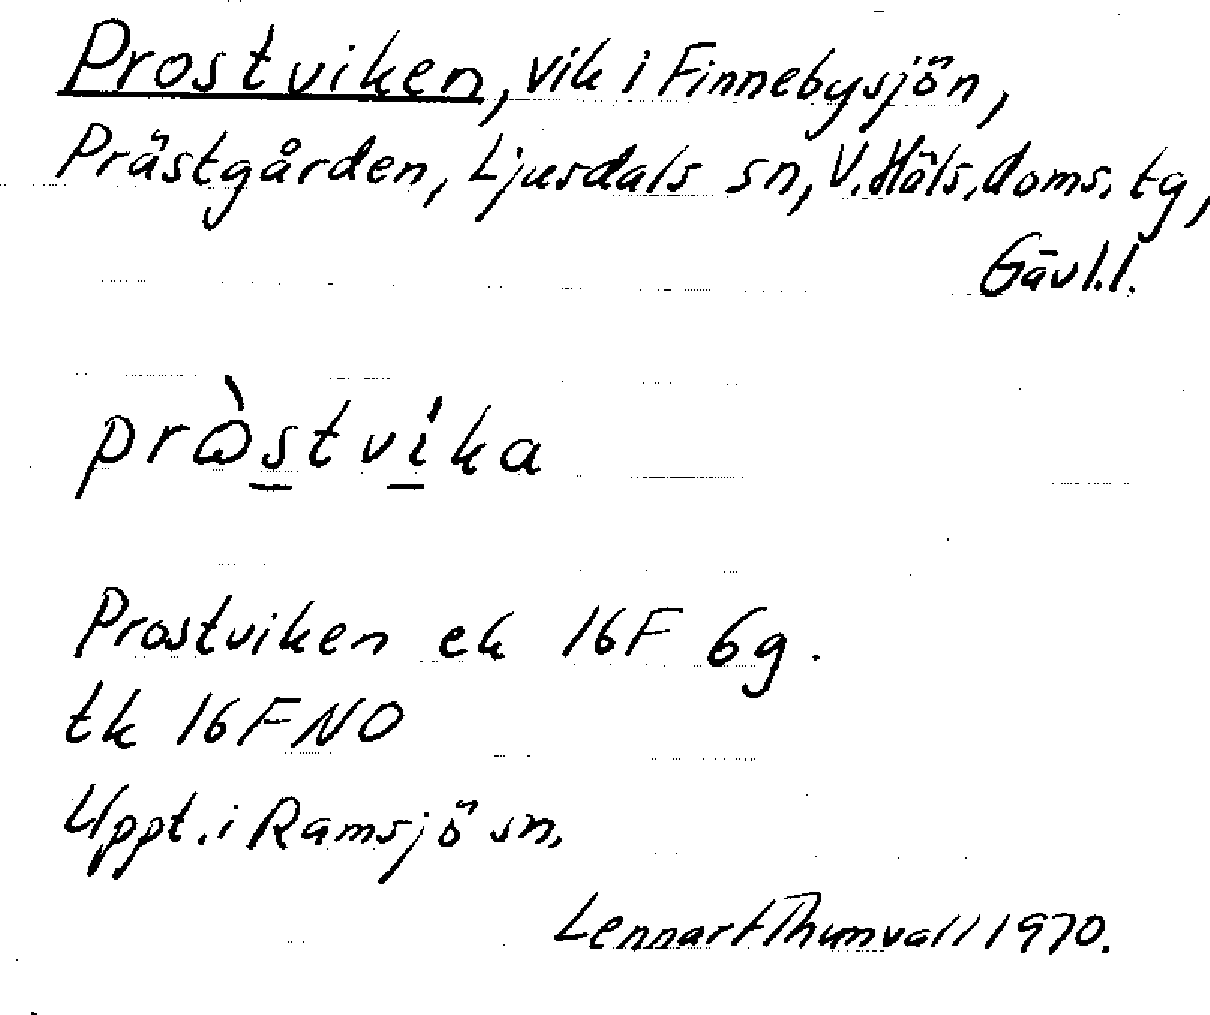 Prostviken, vik i Finnebysjön,
Prästgården, Ljusdals sn, V. Häls. doms. tg,
Gävl.l.
prɷ̀stvíka
Prostviken ek 16F 6g.
tk 16F NO
Uppt. i Ramsjö sn.
Lennart Thunvall 1970.